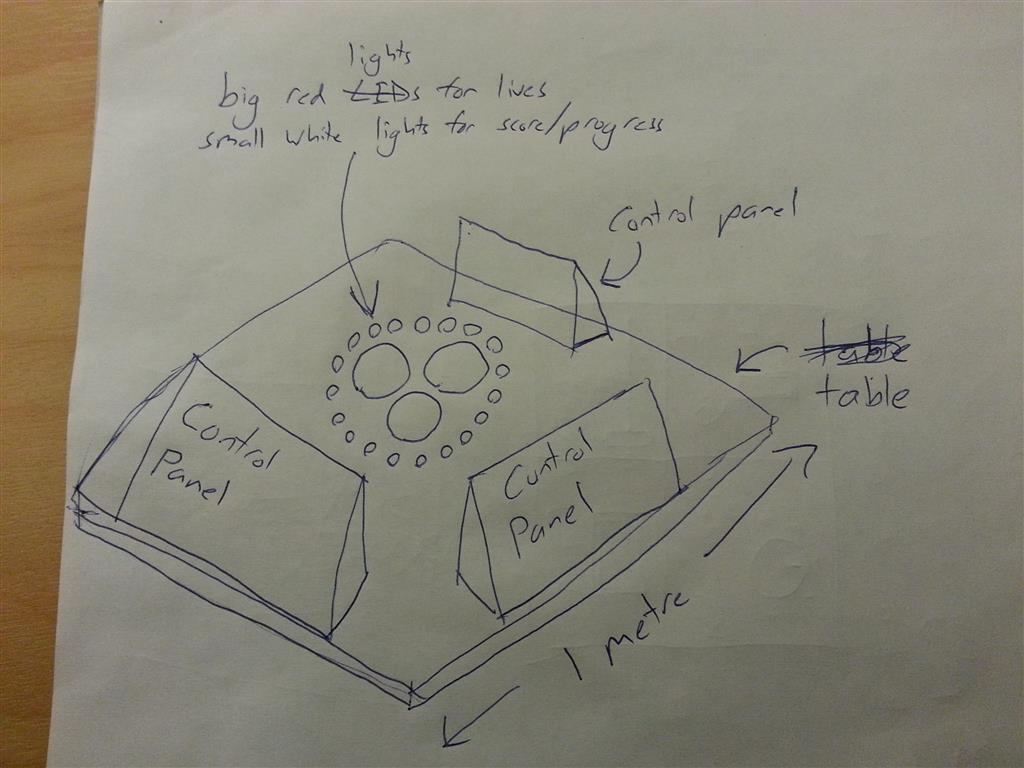 lights
big red LEDs for lives
small white lights for score/progress
Control panel
table
table
Control
Panel
Control
Panel
1 metre